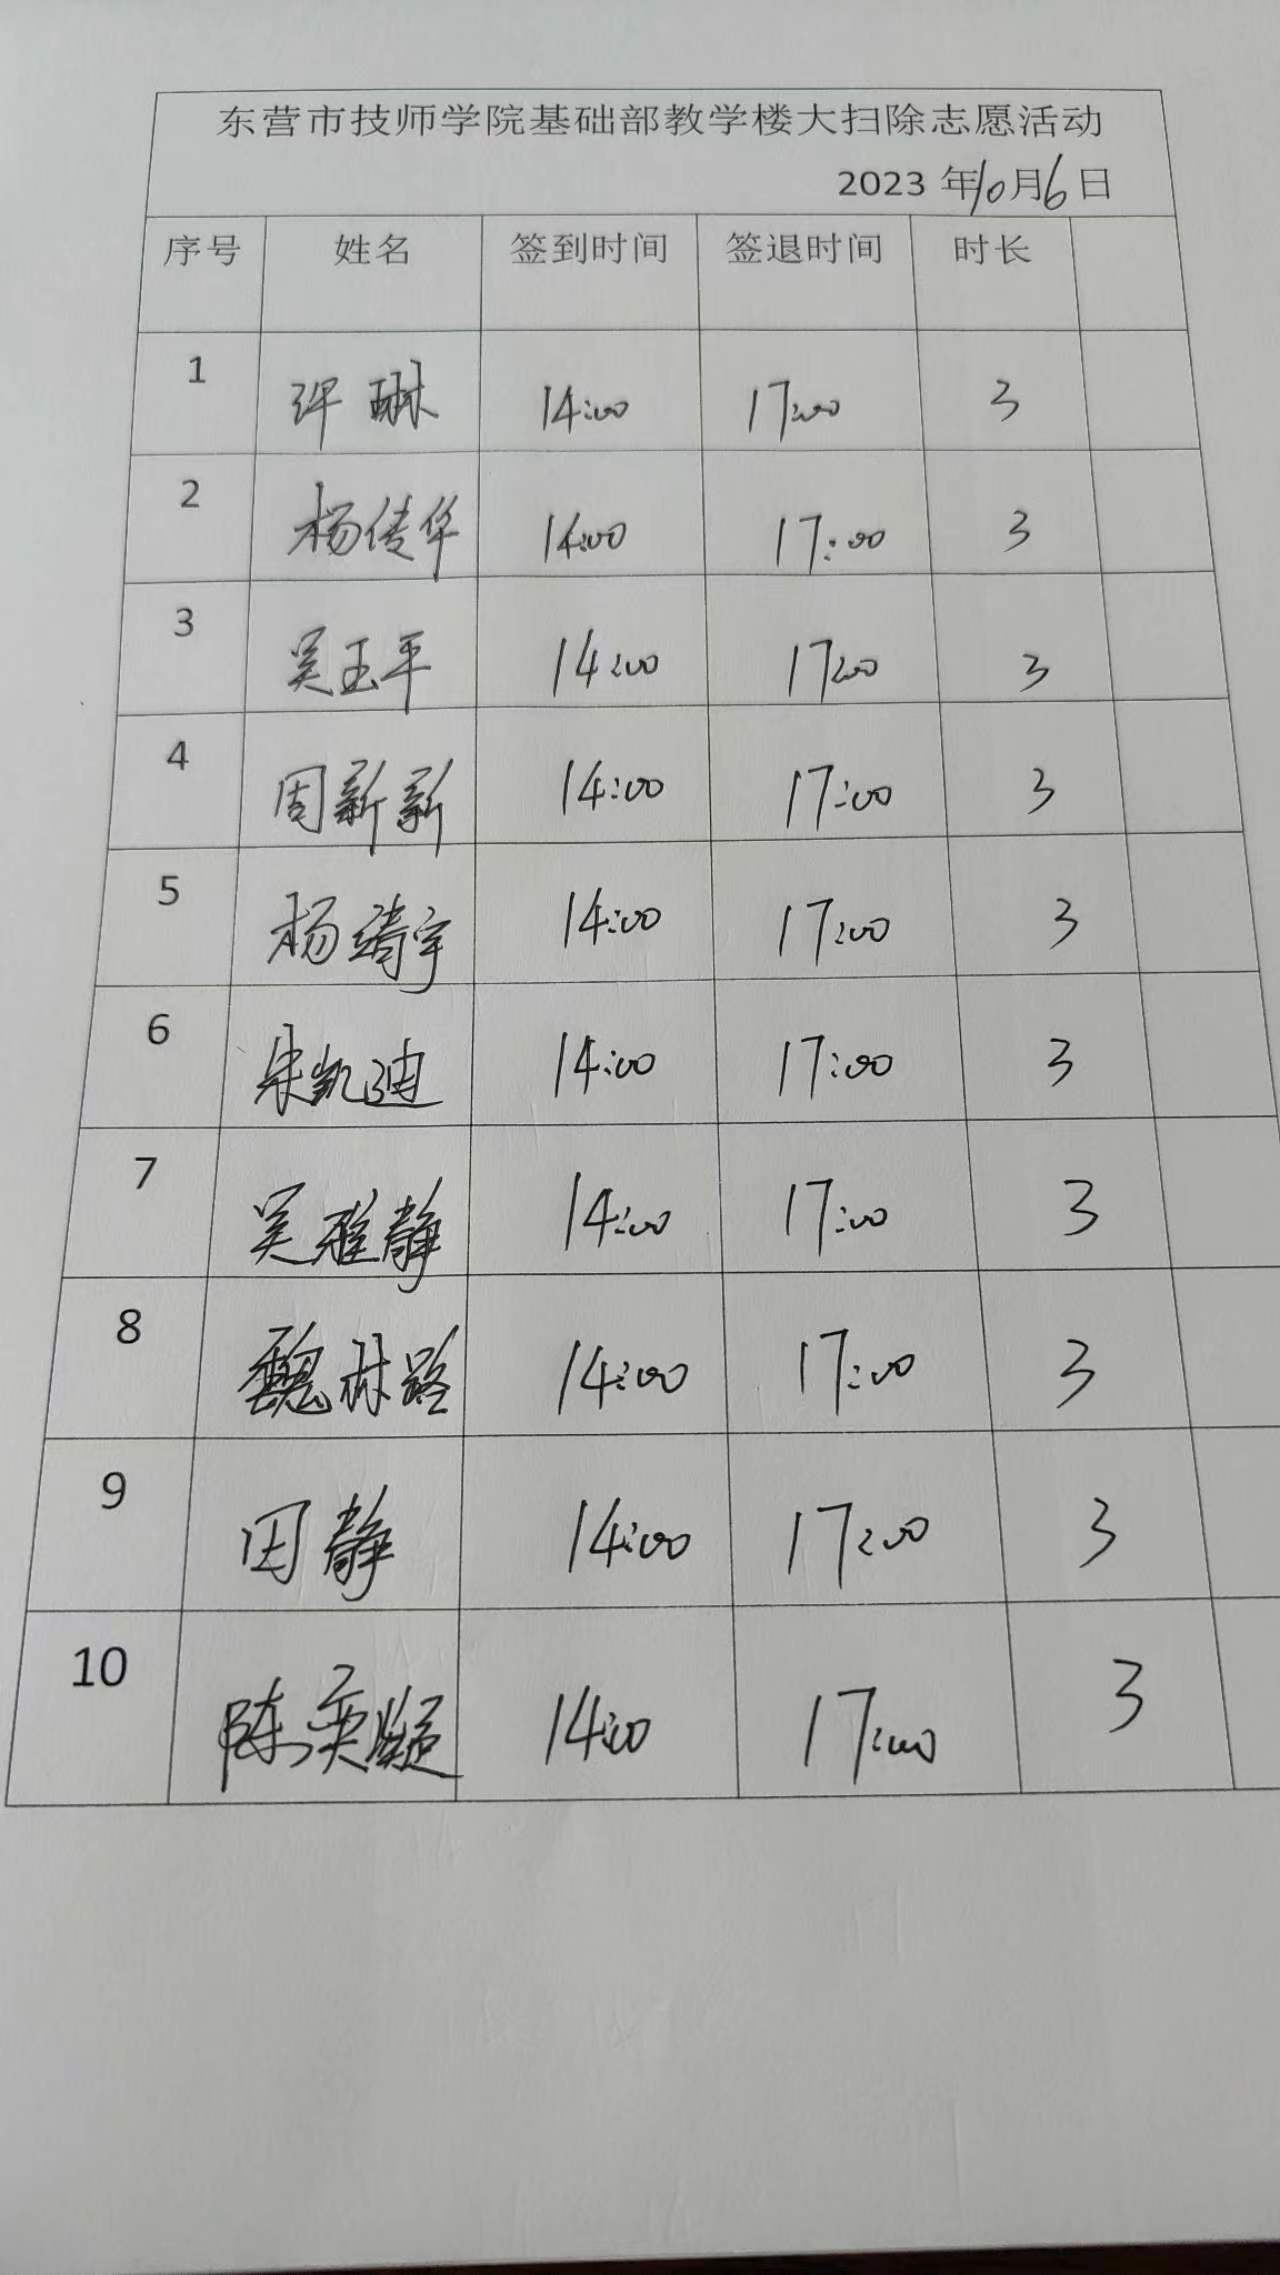 东营市技师学院基础部教学楼大扫除志愿活动
2023 年10月6日
序号 姓名 签到时间 签退时间 时长
1 许琳 14:00 17:00 3
2 杨传华 14:00 17:00 3
3 吴玉平 14:00 17:00 3
4 周新新 14:00 17:00 3
5 杨靖宇 14:00 17:00 3
6 朱凯迪 14:00 17:00 3
7 吴雅静 14:00 17:00 3
8 魏林路 14:00 17:00 3
9 田静 14:00 17:00 3
10 陈奕 14:00 17:00 3